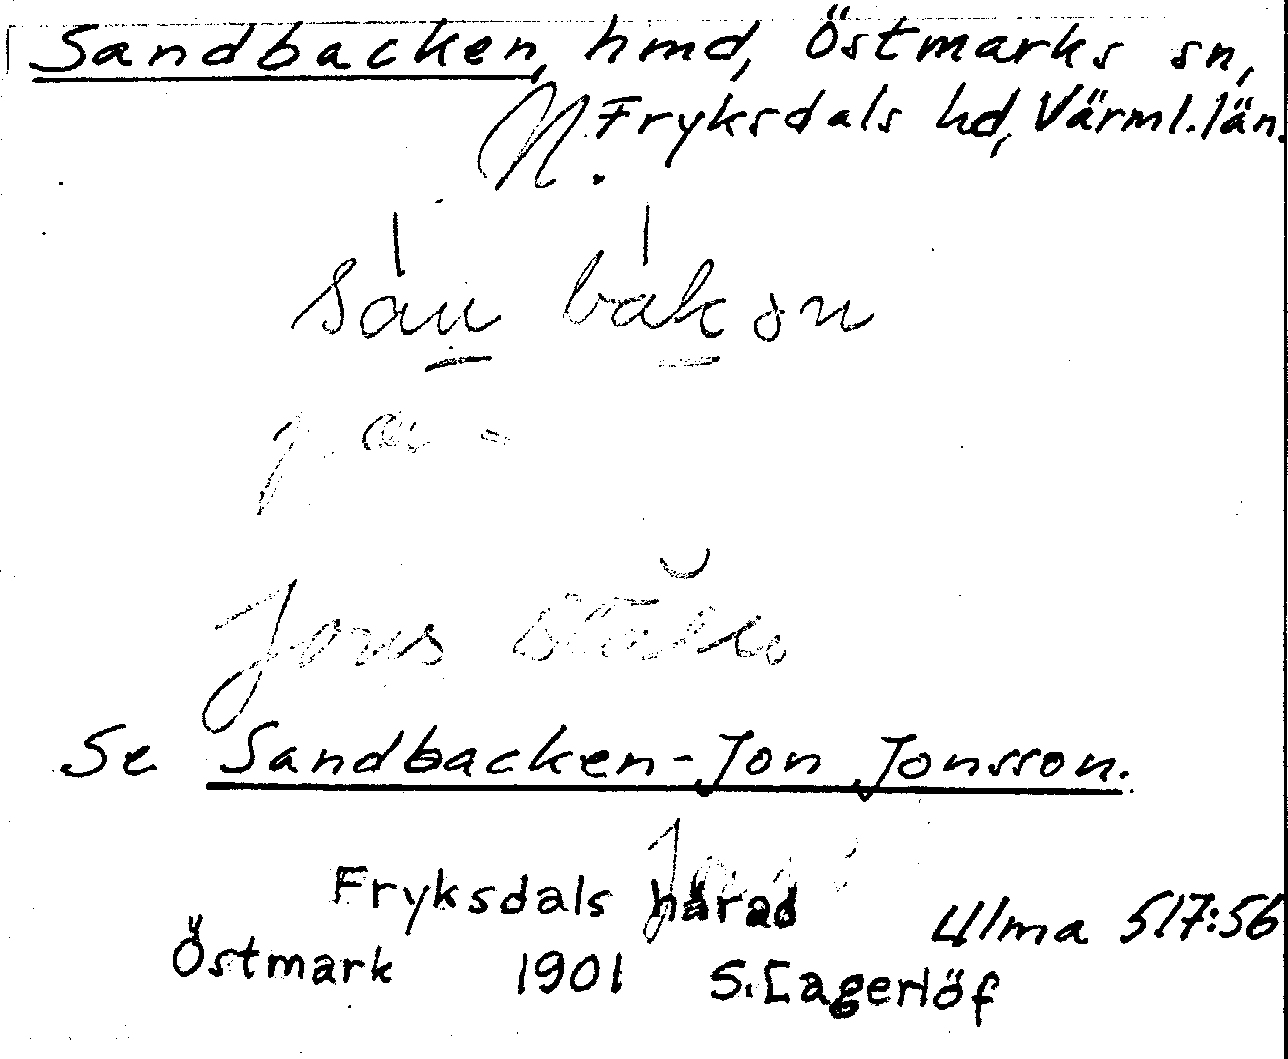 Sandbacken, hmd, Östmarks sn,
N. Fryksdals hd, Värml. län.
Jons
Se Sandbacken-Jon Jonsson.
Fryksdals härad
Ulma 517:56
Östmark 1901 S. Lagerlöf